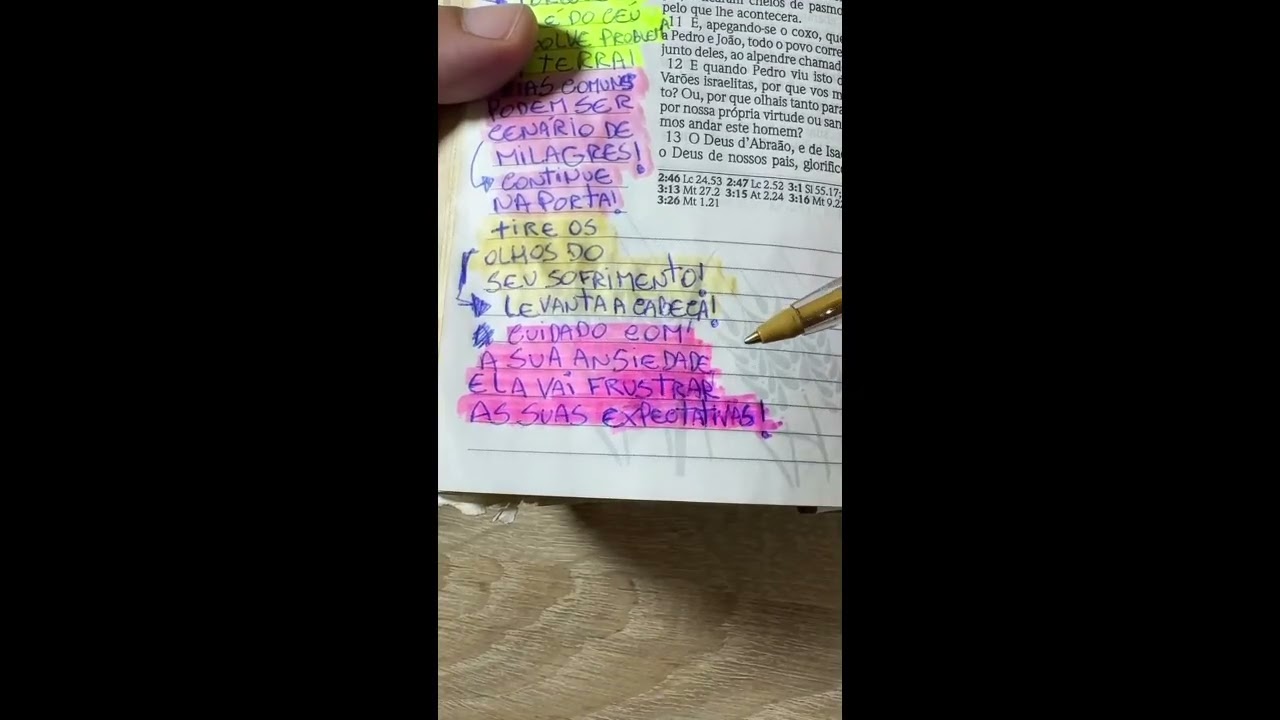 É DO CÉU
PROBLEMA
TERRA!
COMUNS
PODEM SER
CENÁRIO DE
MILAGRES!
CONTINUE
NA PORTA!
TIRE OS
OLHOS DO
SEU SOFRIMENTO!
LEVANTA A CABEÇA!
CUIDADO COM
A SUA ANSIEDADE
ELA VAI FRUSTRAR
AS SUAS EXPECTATIVAS!
cheios de pasmo
pelo que lhe acontecera.
11 E, apegando-se o coxo, que
a Pedro e João, todo o povo corre
junto deles, ao alpendre chamad
12 E quando Pedro viu isto d
Varões israelitas, por que vos m
to? Ou, por que olhais tanto para
por nossa própria virtude ou san
mos andar este homem?
13 O Deus d'Abraão, e de Isa
o Deus de nossos pais, glorific
2:46 Lc 24.53 2:47 Lc 2.52 3:1 Sl 55.17;
3:13 Mt 27.2 3:15 At 2.24 3:16 Mt 9.22
3:26 Mt 1.21